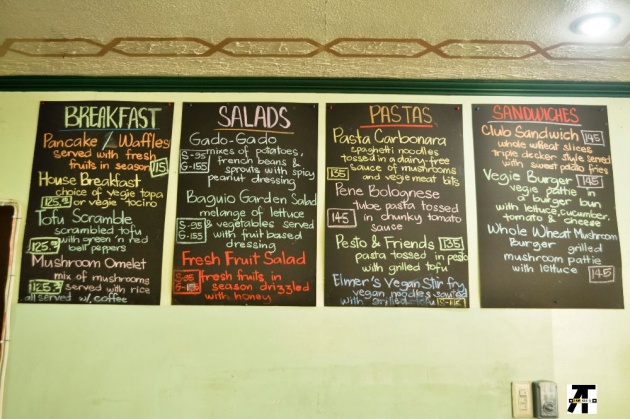 BREAKFAST
Pancake / Waffles
served with fresh
fruits in season 115
House Breakfast
choice of vegie tapa
125 or vegie tocino
Tofu Scramble
scrambled tofu
125 with green n red
bell peppers
Mushroom Omelet
mix of mushrooms
125 served with rice
all served w/ coffee
SALADS
Gado-Gado
S-95 mixes of potatoes,
G-155 french beans &
sprouts with spicy
peanut dressing
Baguio Garden Salad
melange of lettuce
S-95 & vegetables served
G-155 with fruit based
dressing
Fresh Fruit Salad
S-95 fresh fruits in
season drizzled
with honey
PASTAS
Pasta Carbonara
spaghetti noodles
tossed in a dairy-free
155 sauce of mushrooms
and vegie meat bits
Pene Bolognese
tube pasta tossed
145 in chunky tomato
sauce
Pesto & Friends 135
pasta tossed in pesto
with grilled tofu
Elmer's Vegan Stir fry
vegan noodles
with grilled tofu
SANDWICHES
Club Sandwich 145
whole wheat slices
triple decker style served
with sweet potato fries
Vegie Burger 145
vegie pattie in
a burger bun
with lettuce, cucumber,
tomato & cheese
Whole Wheat Mushroom
Burger grilled
mushroom pattie
with lettuce 145